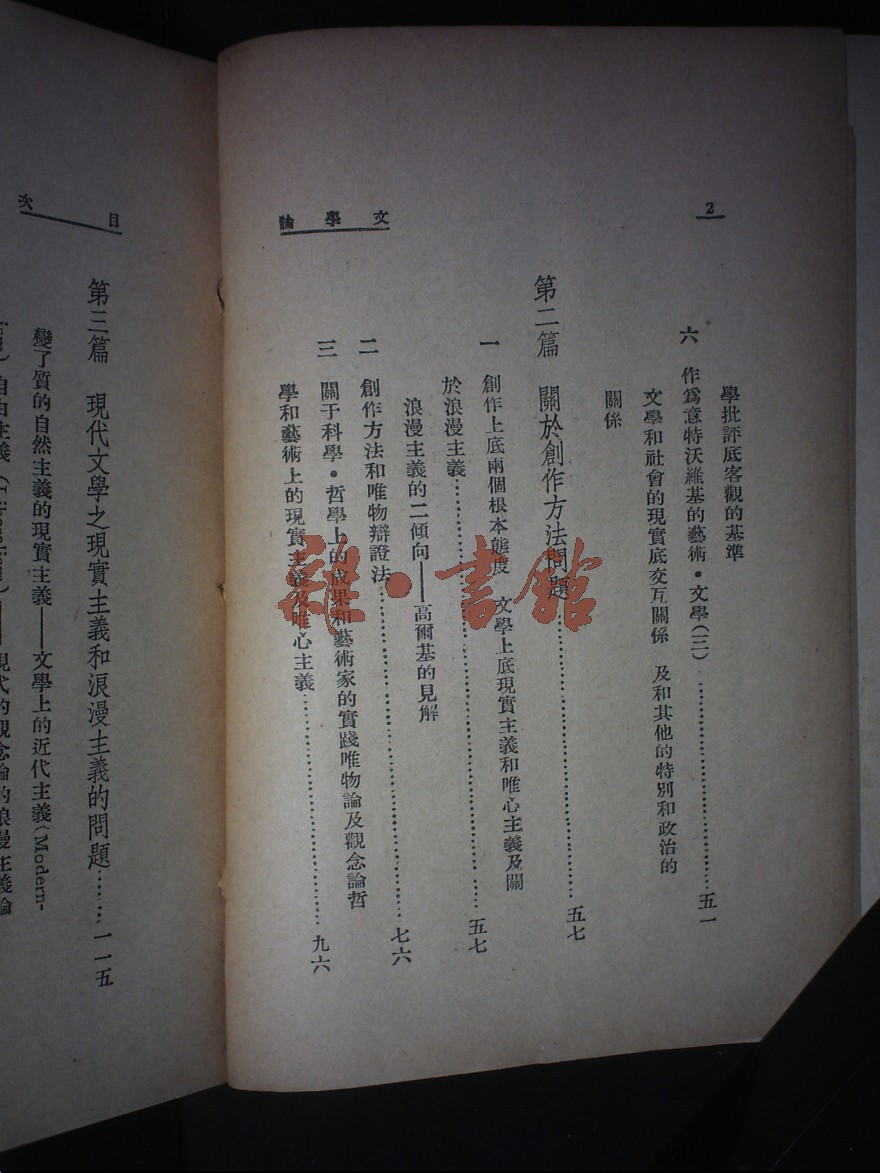 2
文學論
學批評底客觀的基準
六 作爲意特沃維基的藝術•文學(三)……五一
文學和社會的現實底交互關係 及和其他的特別和政治的
關係
第二篇 關於創作方法問題……五七
一 創作上底兩個根本態度 文學上底現實主義和唯心主義及關
於浪漫主義……五七
浪漫主義的二傾向——高爾基的見解
二 創作方法和唯物辯證法……七六
三 關于科學•哲學上的成果和藝術家的實踐唯物論及觀念論哲
學和藝術上的現實主義及唯心主義……九六
目次
第三篇 現代文學之現實主義和浪漫主義的問題……一一五
變了質的自然主義的現實主義——文學上的近代主義(Modern-
自由主義
現代的觀念論的浪漫主義論
雜•書館